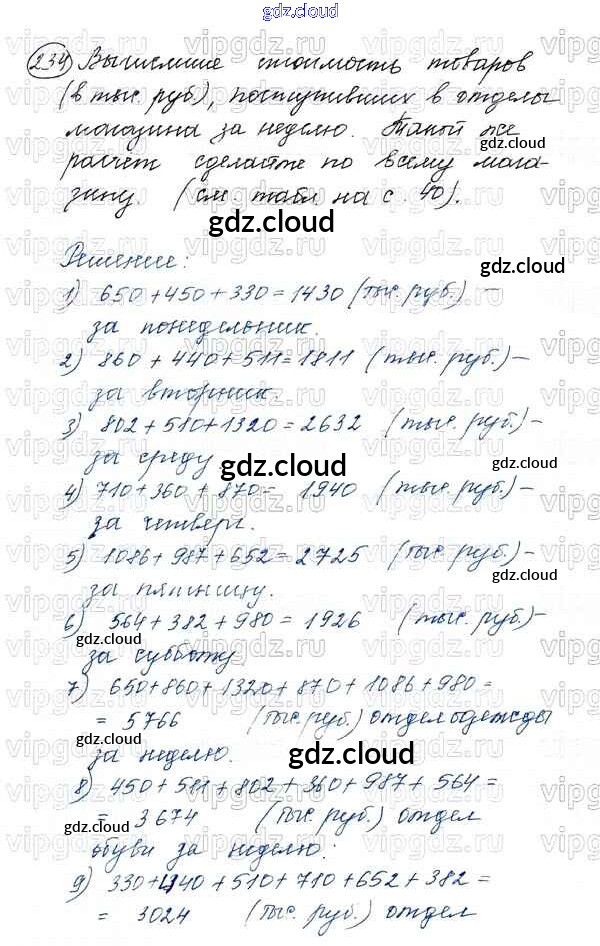 gdz.cloud
234 Вычислите стоимость товаров
(в тыс. руб.), поступивших в отделы
магазина за неделю. Такой же
gdz.cloud
расчёт сделайте по всему мага-
зину. (см. табл на с. 40).
gdz.cloud
Решение:
gdz.cloud
1) 650+450+330=1430 (тыс. руб.) –
за понедельник.
2) 860+440+511=1811 (тыс. руб.) –
за вторник.
3) 802+510+1320=2632 (тыс. руб.) –
за среду
gdz.cloud
gdz.cloud
4) 710+360+870= 1940 (тыс. руб.) –
за четверг.
5) 1086+987+652=2725 (тыс. руб.) –
за пятницу.
gdz.cloud
6) 564+382+980=1926 (тыс. руб.) –
gdz.cloud
за субботу
7) 650+860+1320+870+1086+980=
= 5766 (тыс. руб.) отдел одежды
за неделю.
gdz.cloud
8) 450+511+802+360+987+564=
= 3674 (тыс. руб.) отдел
gdz.cloud
обуви за неделю.
9) 330+440+510+710+652+382=
= 3024 (тыс. руб.) отдел
vipgdz.ru